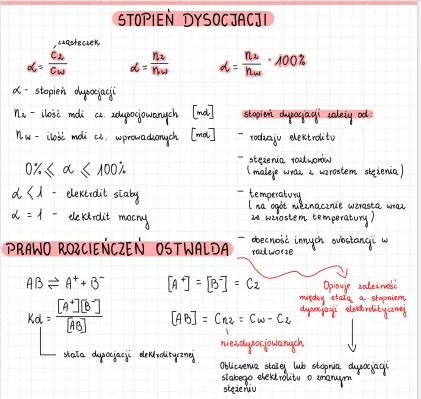 STOPIEŃ DYSOCJACJI
cząsteczek
α = Cz/Cw α = nz/nw α = nz/nw · 100%
α - stopień dysocjacji
nz - ilość moli cz. zdysocjowanych [mol]
nw - ilość moli cz. wprowadzonych [mol]
0% ⩽ α ⩽ 100%
α < 1 - elektrolit słaby
α = 1 - elektrolit mocny
stopień dysocjacji zależy od:
- rodzaju elektrolitu
- stężenia roztworów
(maleje wraz z wzrostem stężenia)
- temperatury
(na ogół nieznacznie wzrasta wraz
ze wzrostem temperatury)
- obecność innych substancji w
roztworze
PRAWO ROZCIEŃCZEŃ OSTWALDA
AB ⇌ A⁺ + B⁻
Kd = [A⁺][B⁻]/[AB]
stała dysocjacji elektrolitycznej
[A⁺] = [B⁻] = Cz
[AB] = Cnz = Cw - Cz
niezdysocjowanych
Opisuje zależność
między stałą a stopniem
dysocjacji elektrolitycznej
Obliczenia stałej lub stopnia dysocjacji
słabego elektrolitu o znanym
stężeniu